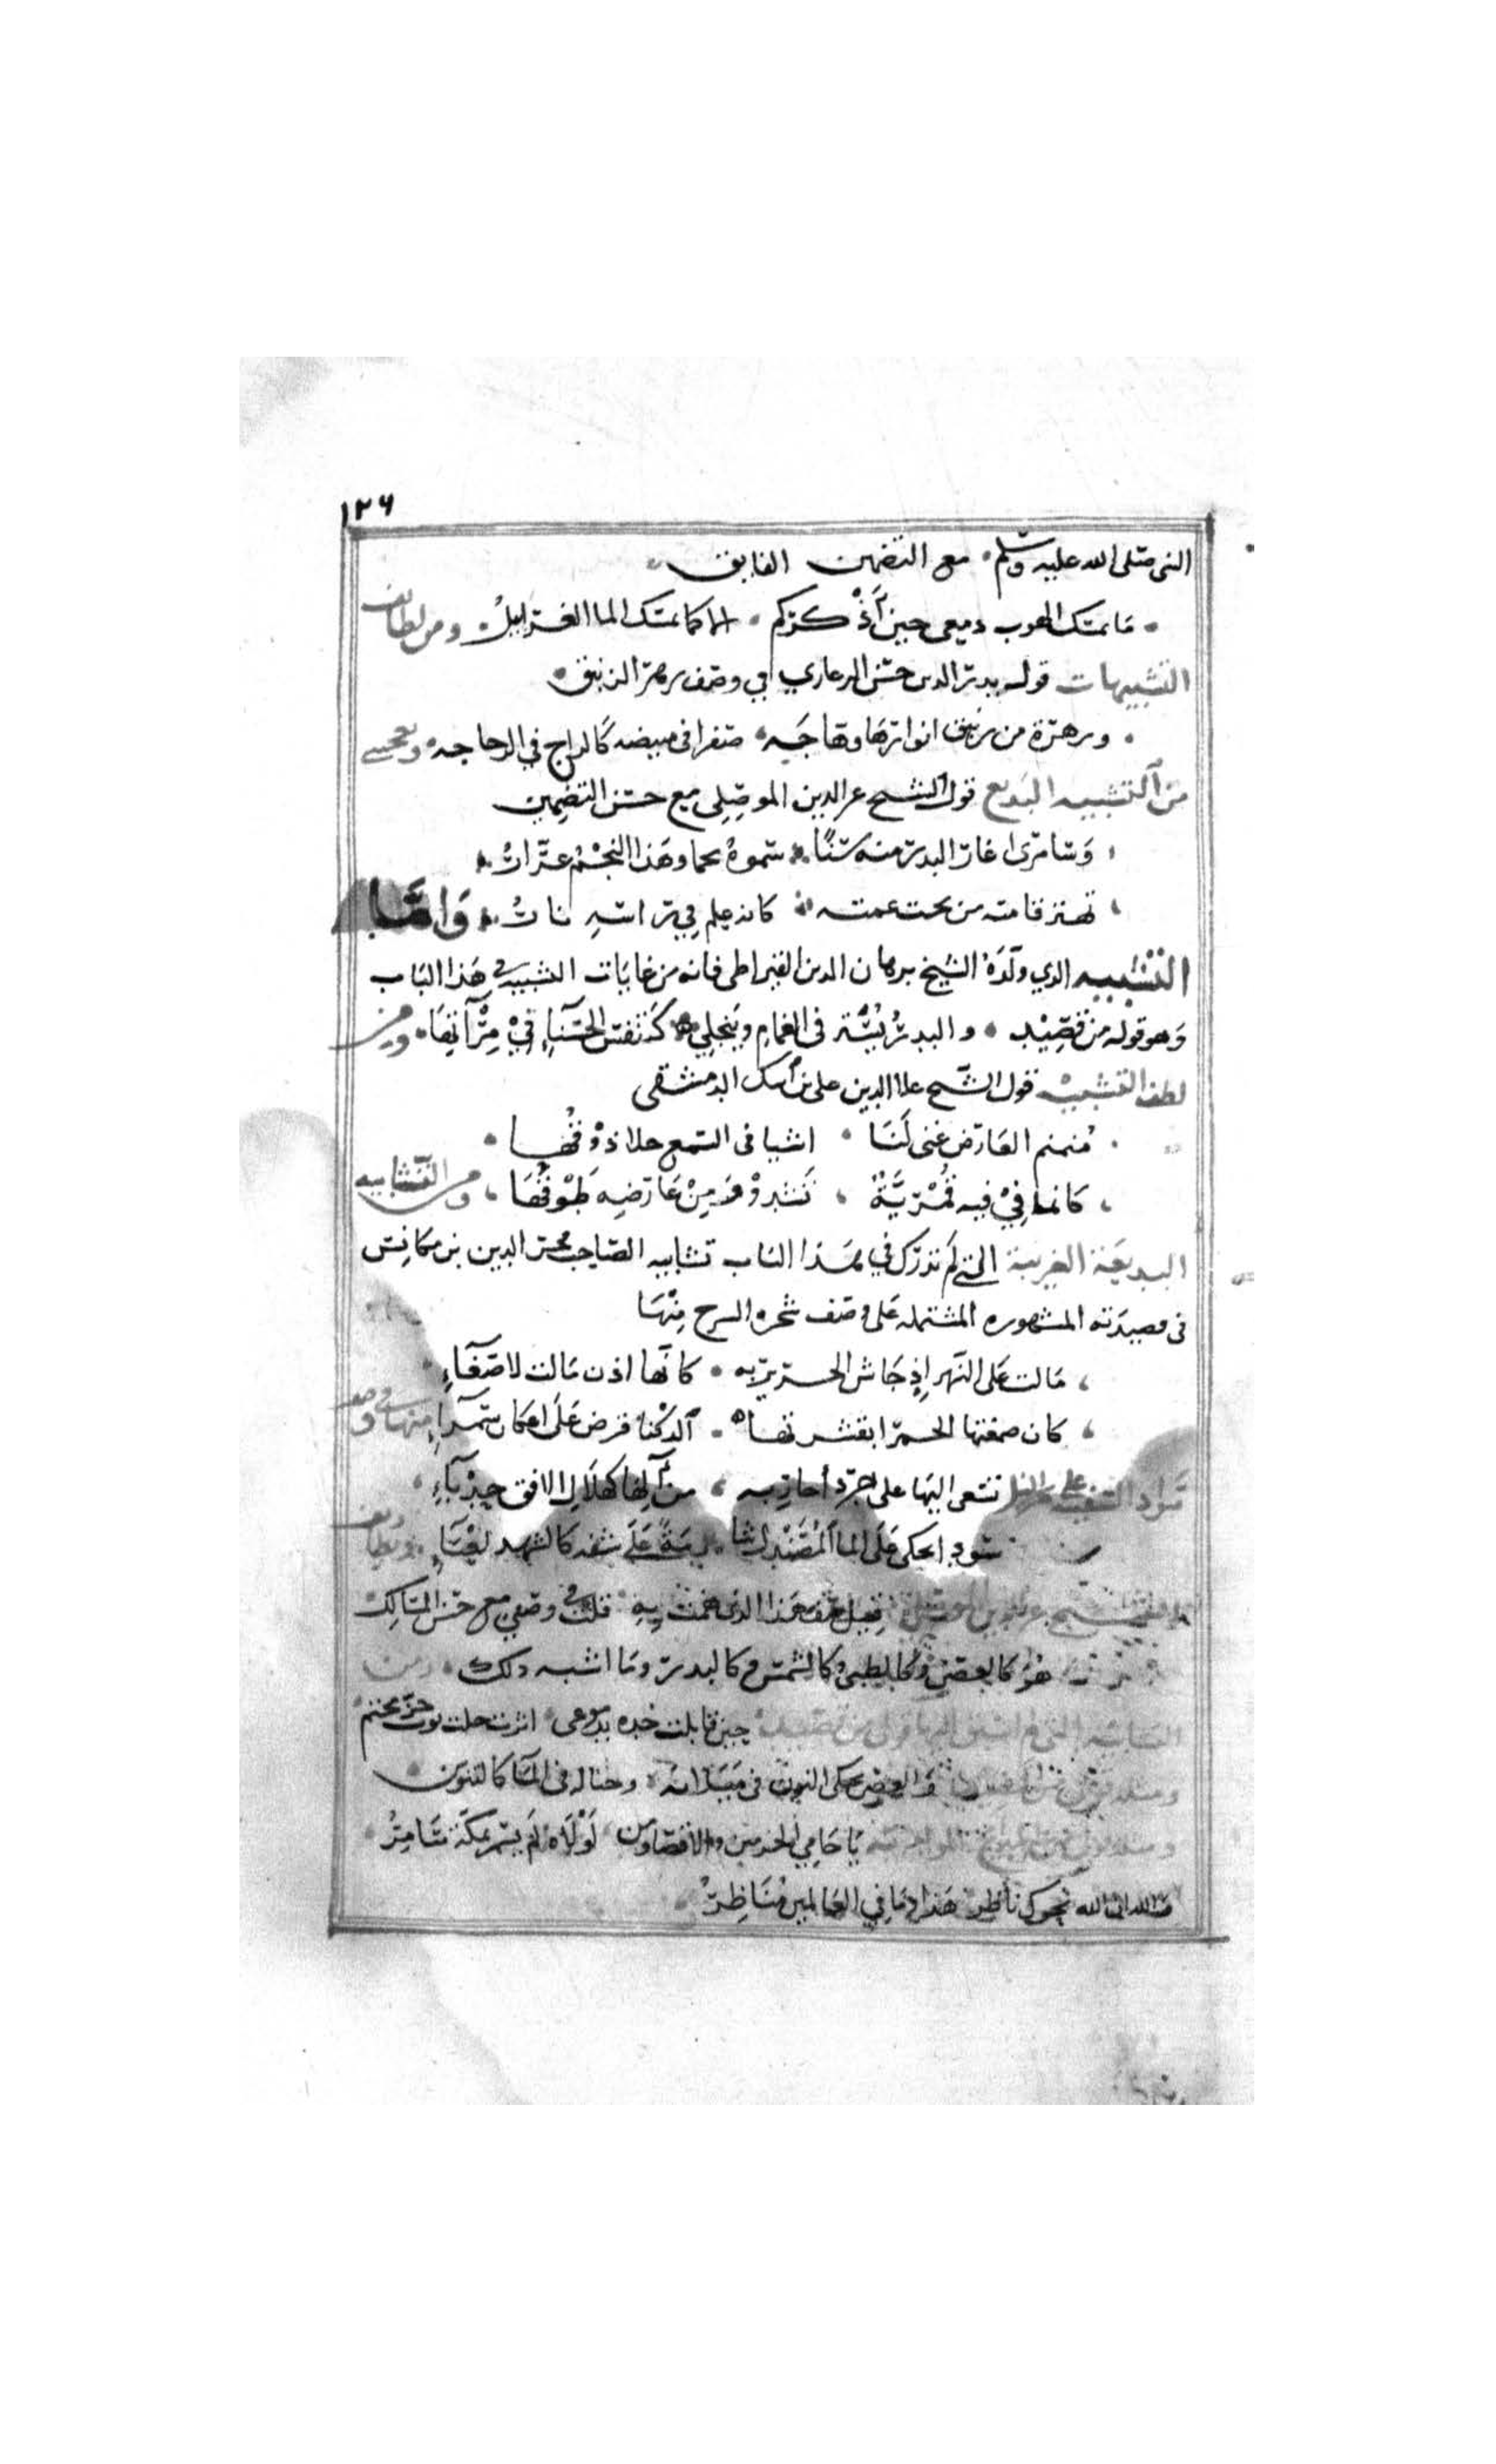 ١٢٦
النبى صلى الله عليه وسلم • مع التضمين الفايق
• ما تمسك الهدب دمعى حين أذكركم • الا كما تمسك الما الغرابيل • ومن لطايف
التشبيهات قول بدر الدين حسن الزغاري في وصف زهر الزنبق •
• وزهرة من زنبق انوارها وهاجه • صفرا فى مبيضه كالراج في الزجاجه • ويعجبنى
من التشبيه البديع قول الشيخ عز الدين الموصلي مع حسن التضمين
، وسامرى اغار البدر منه سنًا • سموه نجما وهذا النجم غرار
، تهتز قامته من تحت عمته • كانه علم في راسه نار • واما
التشبيه الذي ولده الشيخ برهان الدين القيراطى فانه من غايات التشبيه فى هذا الباب
وهو قوله من قصيد • والبدر يُستر فى الغمام وينجلي • كتنفس الحسناء في مرآتها • ومن
لطف التشبيه قول الشيخ علا الدين علي بن أيبك الدمشقى
• منمنم العارض غنى لنا • اشيا فى السمع حلا ذوقها •
، كانما في فيه قمرية ، تشدو ومن عارضه طوقها ، ومن التشابيه
البديعة الغريبة التى لم تدرك في هذا الباب تشابيه الصاحب فخر الدين بن مكانس
فى قصيدته المشهوره المشتمله على وصف شجره السرح منها
، مالت على النهر إذ جاش الخرير به • كانها اذن مالت لاصغاء
، كان صمغتها الحمرا بقشرتها • الدكنا قرص على اعكان سمراء منها فى وصف
تسعى اليها على جرد احاربه ، من آلها كهلال الافق حدباء ،
سود احكى على الما المصندل شا مة على شفه كالشهد لعساء
الشيخ عز الدين الموصلي فيل صف هذا الذى همت به قلت فى وصفي مع حسن المسالك
هو كالغصن وكالظبي وكالشمس وكالبدر وما اشبه ذلك • ومن
حين قابلت خده بدموعى • اثرت خلت ثوب خز بختم
والغصن يحكى النون فى ميلانه • وخياله فى الماء كالتنوين
يا حامي الحرمين والاقصا ومن • لولاه لم يسمر بمكة سامر
والله ان الله نحوك ناظر هذا وما في العالمين مناظر